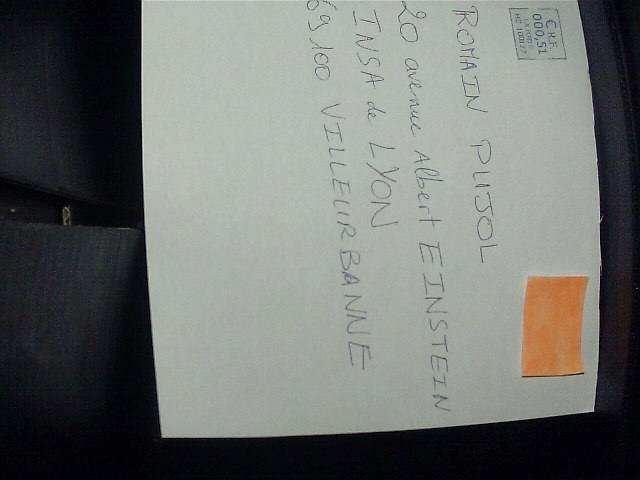 € R.F.
000,51
LA POSTE
ROMAIN PUJOL
20 avenue Albert EINSTEIN
INSA de LYON
69100 VILLEURBANNE